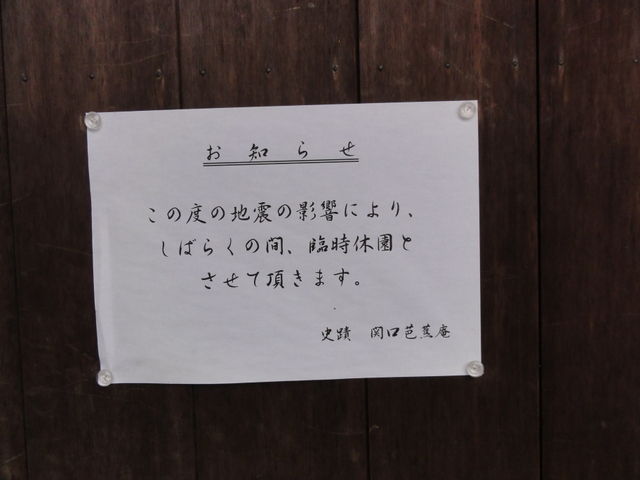 お知らせ
この度の地震の影響により、
しばらくの間、臨時休園と
させて頂きます。
史蹟　関口芭蕉庵